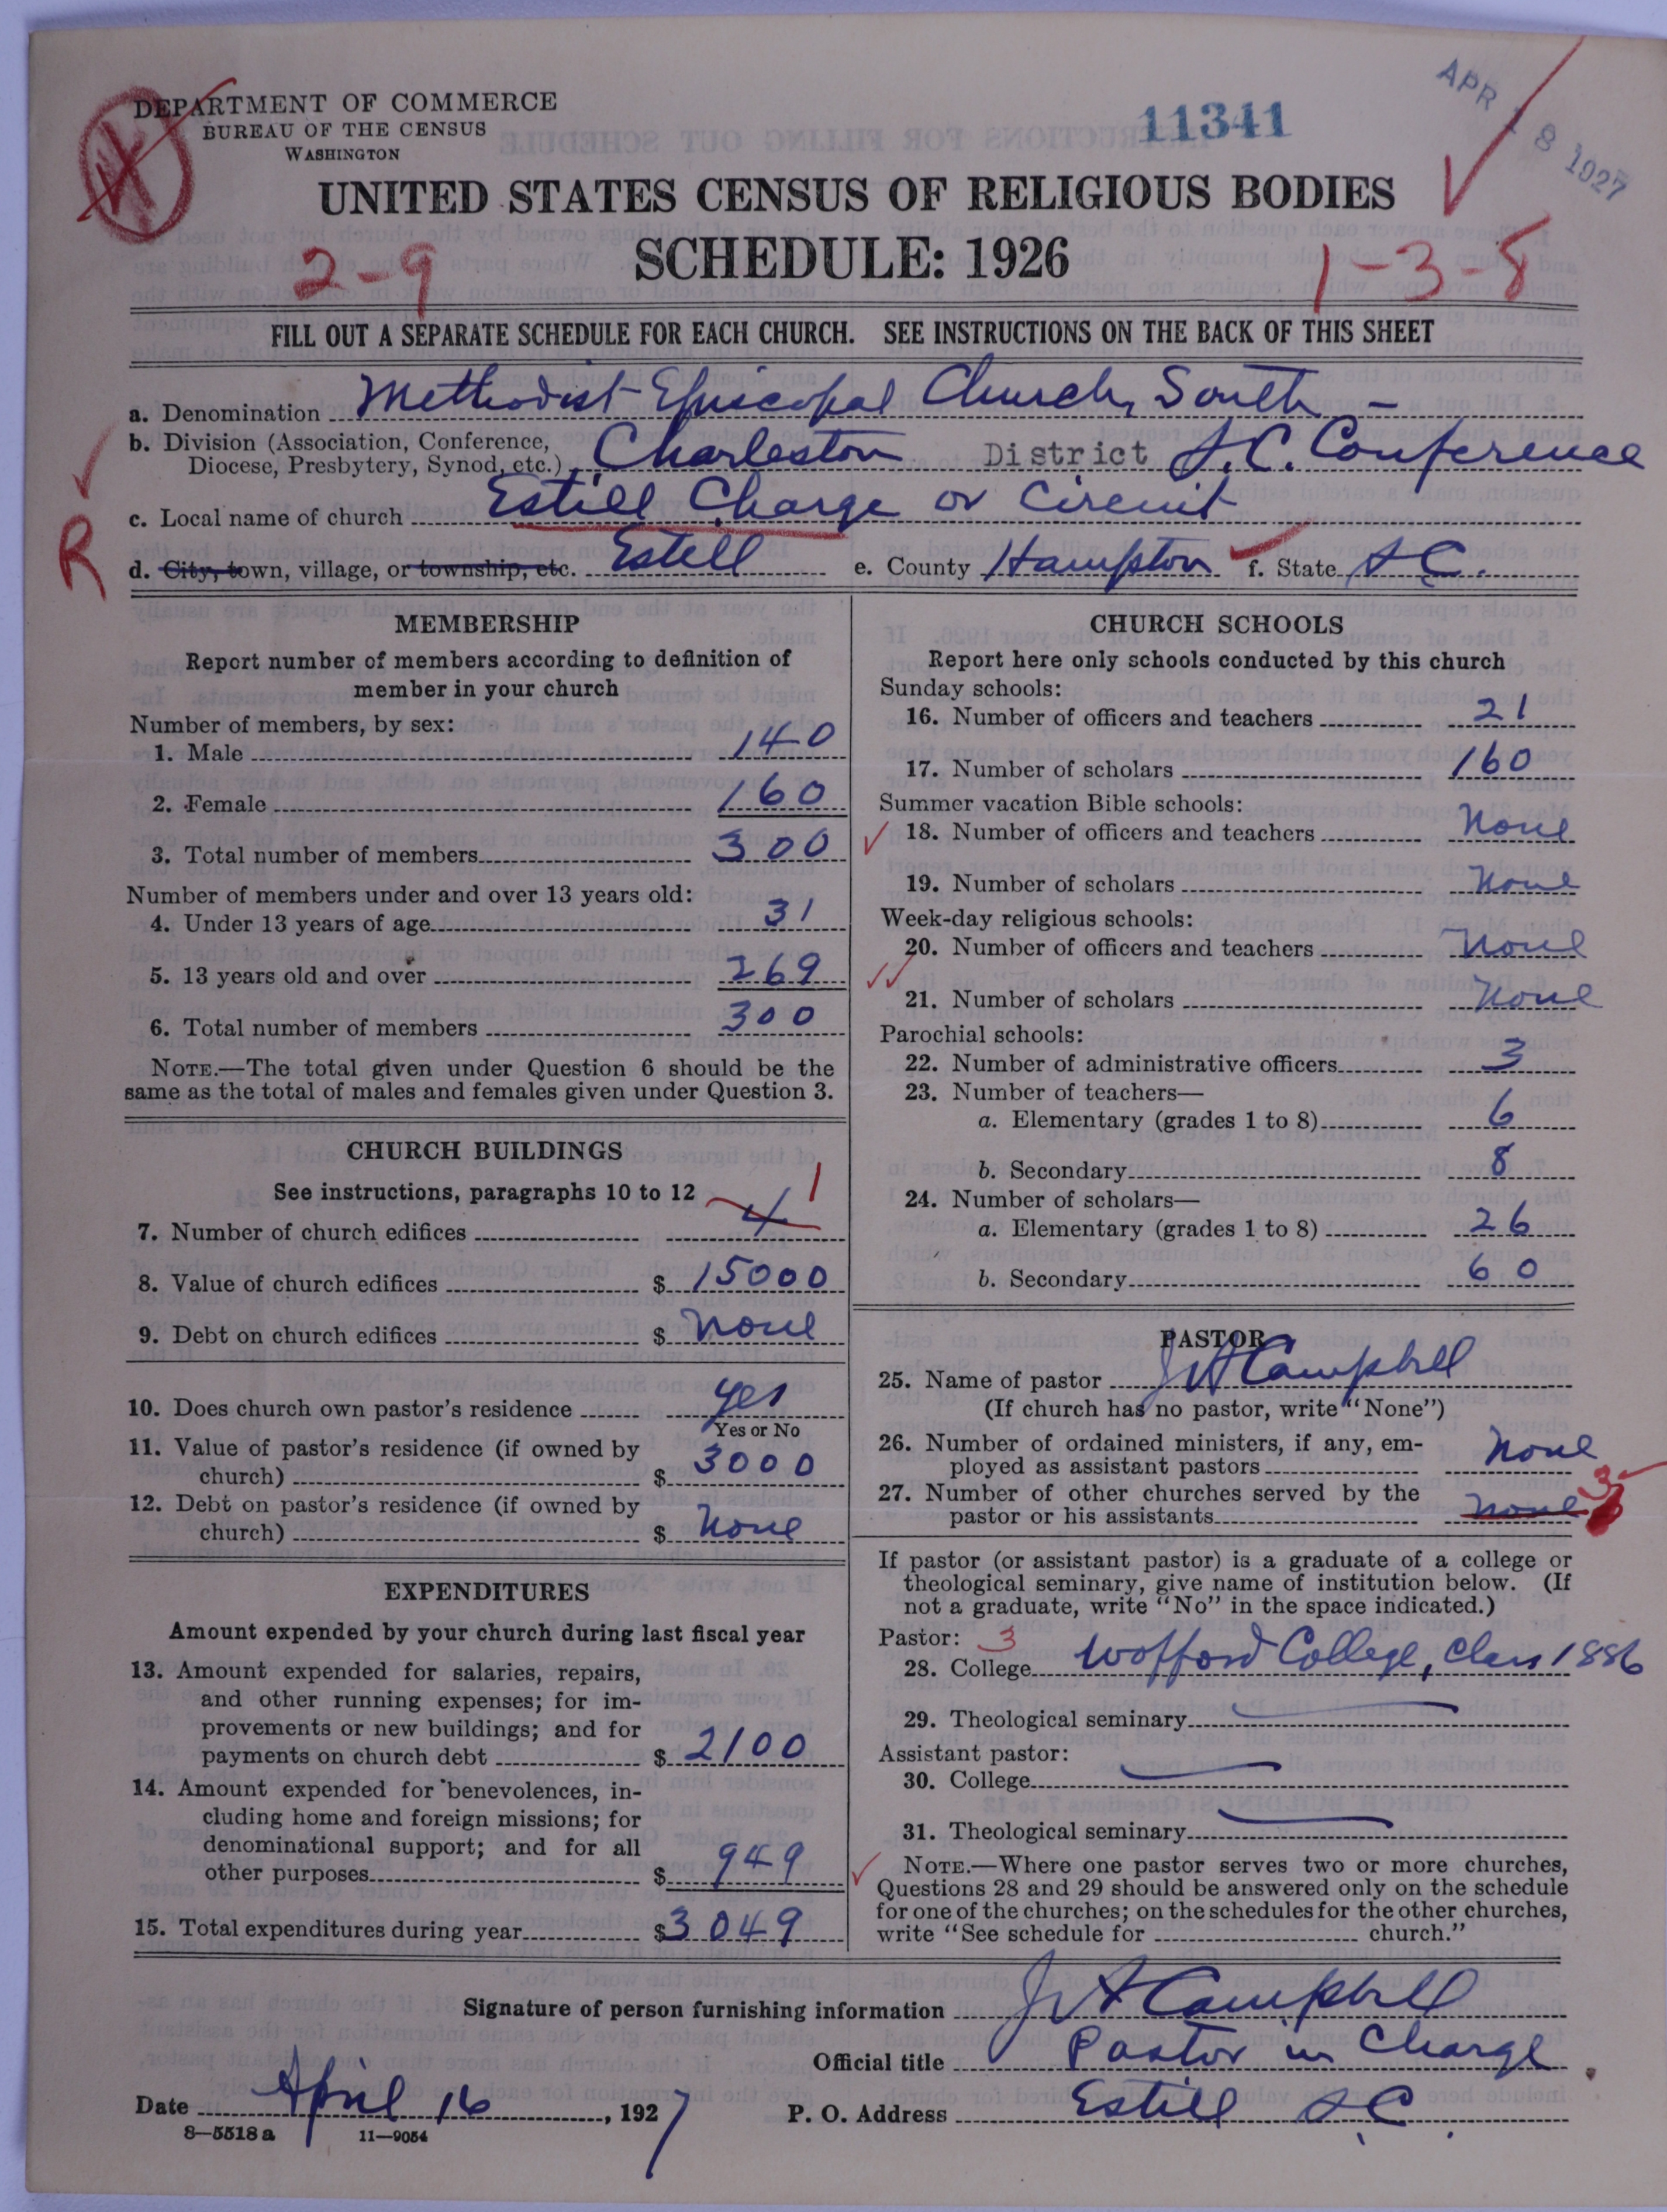 DEPARTMENT OF COMMERCE
BUREAU OF THE CENSUS
WASHINGTON
11341
APR 18 1927
UNITED STATES CENSUS OF RELIGIOUS BODIES
SCHEDULE: 1926
2-9
1-3-8
FILL OUT A SEPARATE SCHEDULE FOR EACH CHURCH. SEE INSTRUCTIONS ON THE BACK OF THIS SHEET
a. Denomination Methodist Episcopal Church, South -
b. Division (Association, Conference,
Diocese, Presbytery, Synod, etc.) Charleston District S.C. Conference
c. Local name of church Estill Charge or Circuit
R
d. City, town, village, or township, etc. Estill e. County Hampton f. State S C.
MEMBERSHIP
Report number of members according to definition of
member in your church
Number of members, by sex:
1. Male 140
2. Female 160
3. Total number of members 300
Number of members under and over 13 years old:
4. Under 13 years of age 31
5. 13 years old and over 269
6. Total number of members 300
NOTE.—The total given under Question 6 should be the
same as the total of males and females given under Question 3.
CHURCH BUILDINGS
See instructions, paragraphs 10 to 12
7. Number of church edifices 4 1
8. Value of church edifices $ 15000
9. Debt on church edifices $ none
10. Does church own pastor's residence yes
Yes or No
11. Value of pastor's residence (if owned by
church) $ 3000
12. Debt on pastor's residence (if owned by
church) $ none
EXPENDITURES
Amount expended by your church during last fiscal year
13. Amount expended for salaries, repairs,
and other running expenses; for im-
provements or new buildings; and for
payments on church debt $ 2100
14. Amount expended for benevolences, in-
cluding home and foreign missions; for
denominational support; and for all
other purposes $ 949
15. Total expenditures during year $3049
CHURCH SCHOOLS
Report here only schools conducted by this church
Sunday schools:
16. Number of officers and teachers 21
17. Number of scholars 160
Summer vacation Bible schools:
18. Number of officers and teachers None
19. Number of scholars None
Week-day religious schools:
20. Number of officers and teachers None
21. Number of scholars None
Parochial schools:
22. Number of administrative officers 3
23. Number of teachers—
a. Elementary (grades 1 to 8) 6
b. Secondary 8
24. Number of scholars—
a. Elementary (grades 1 to 8) 26
b. Secondary 60
PASTOR
25. Name of pastor J W Campbell
(If church has no pastor, write "None")
26. Number of ordained ministers, if any, em-
ployed as assistant pastors None
27. Number of other churches served by the
pastor or his assistants none 3
If pastor (or assistant pastor) is a graduate of a college or
theological seminary, give name of institution below. (If
not a graduate, write "No" in the space indicated.)
Pastor: 3
28. College Wofford College, Class 1886
29. Theological seminary
Assistant pastor:
30. College
31. Theological seminary
NOTE.—Where one pastor serves two or more churches,
Questions 28 and 29 should be answered only on the schedule
for one of the churches; on the schedules for the other churches,
write "See schedule for church."
Signature of person furnishing information J W Campbell
Official title Pastor in Charge
Date April 16, 1927 P. O. Address Estill S C.
8—5518 a 11—9054